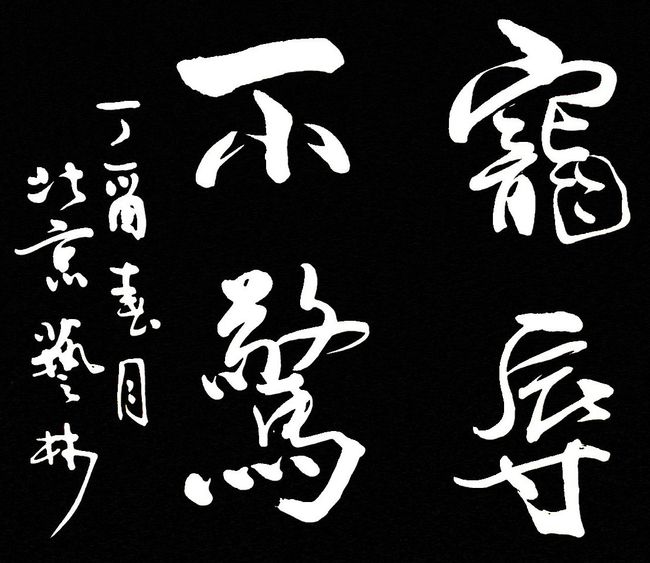 寵辱
不驚
丁酉春月
北京藝林